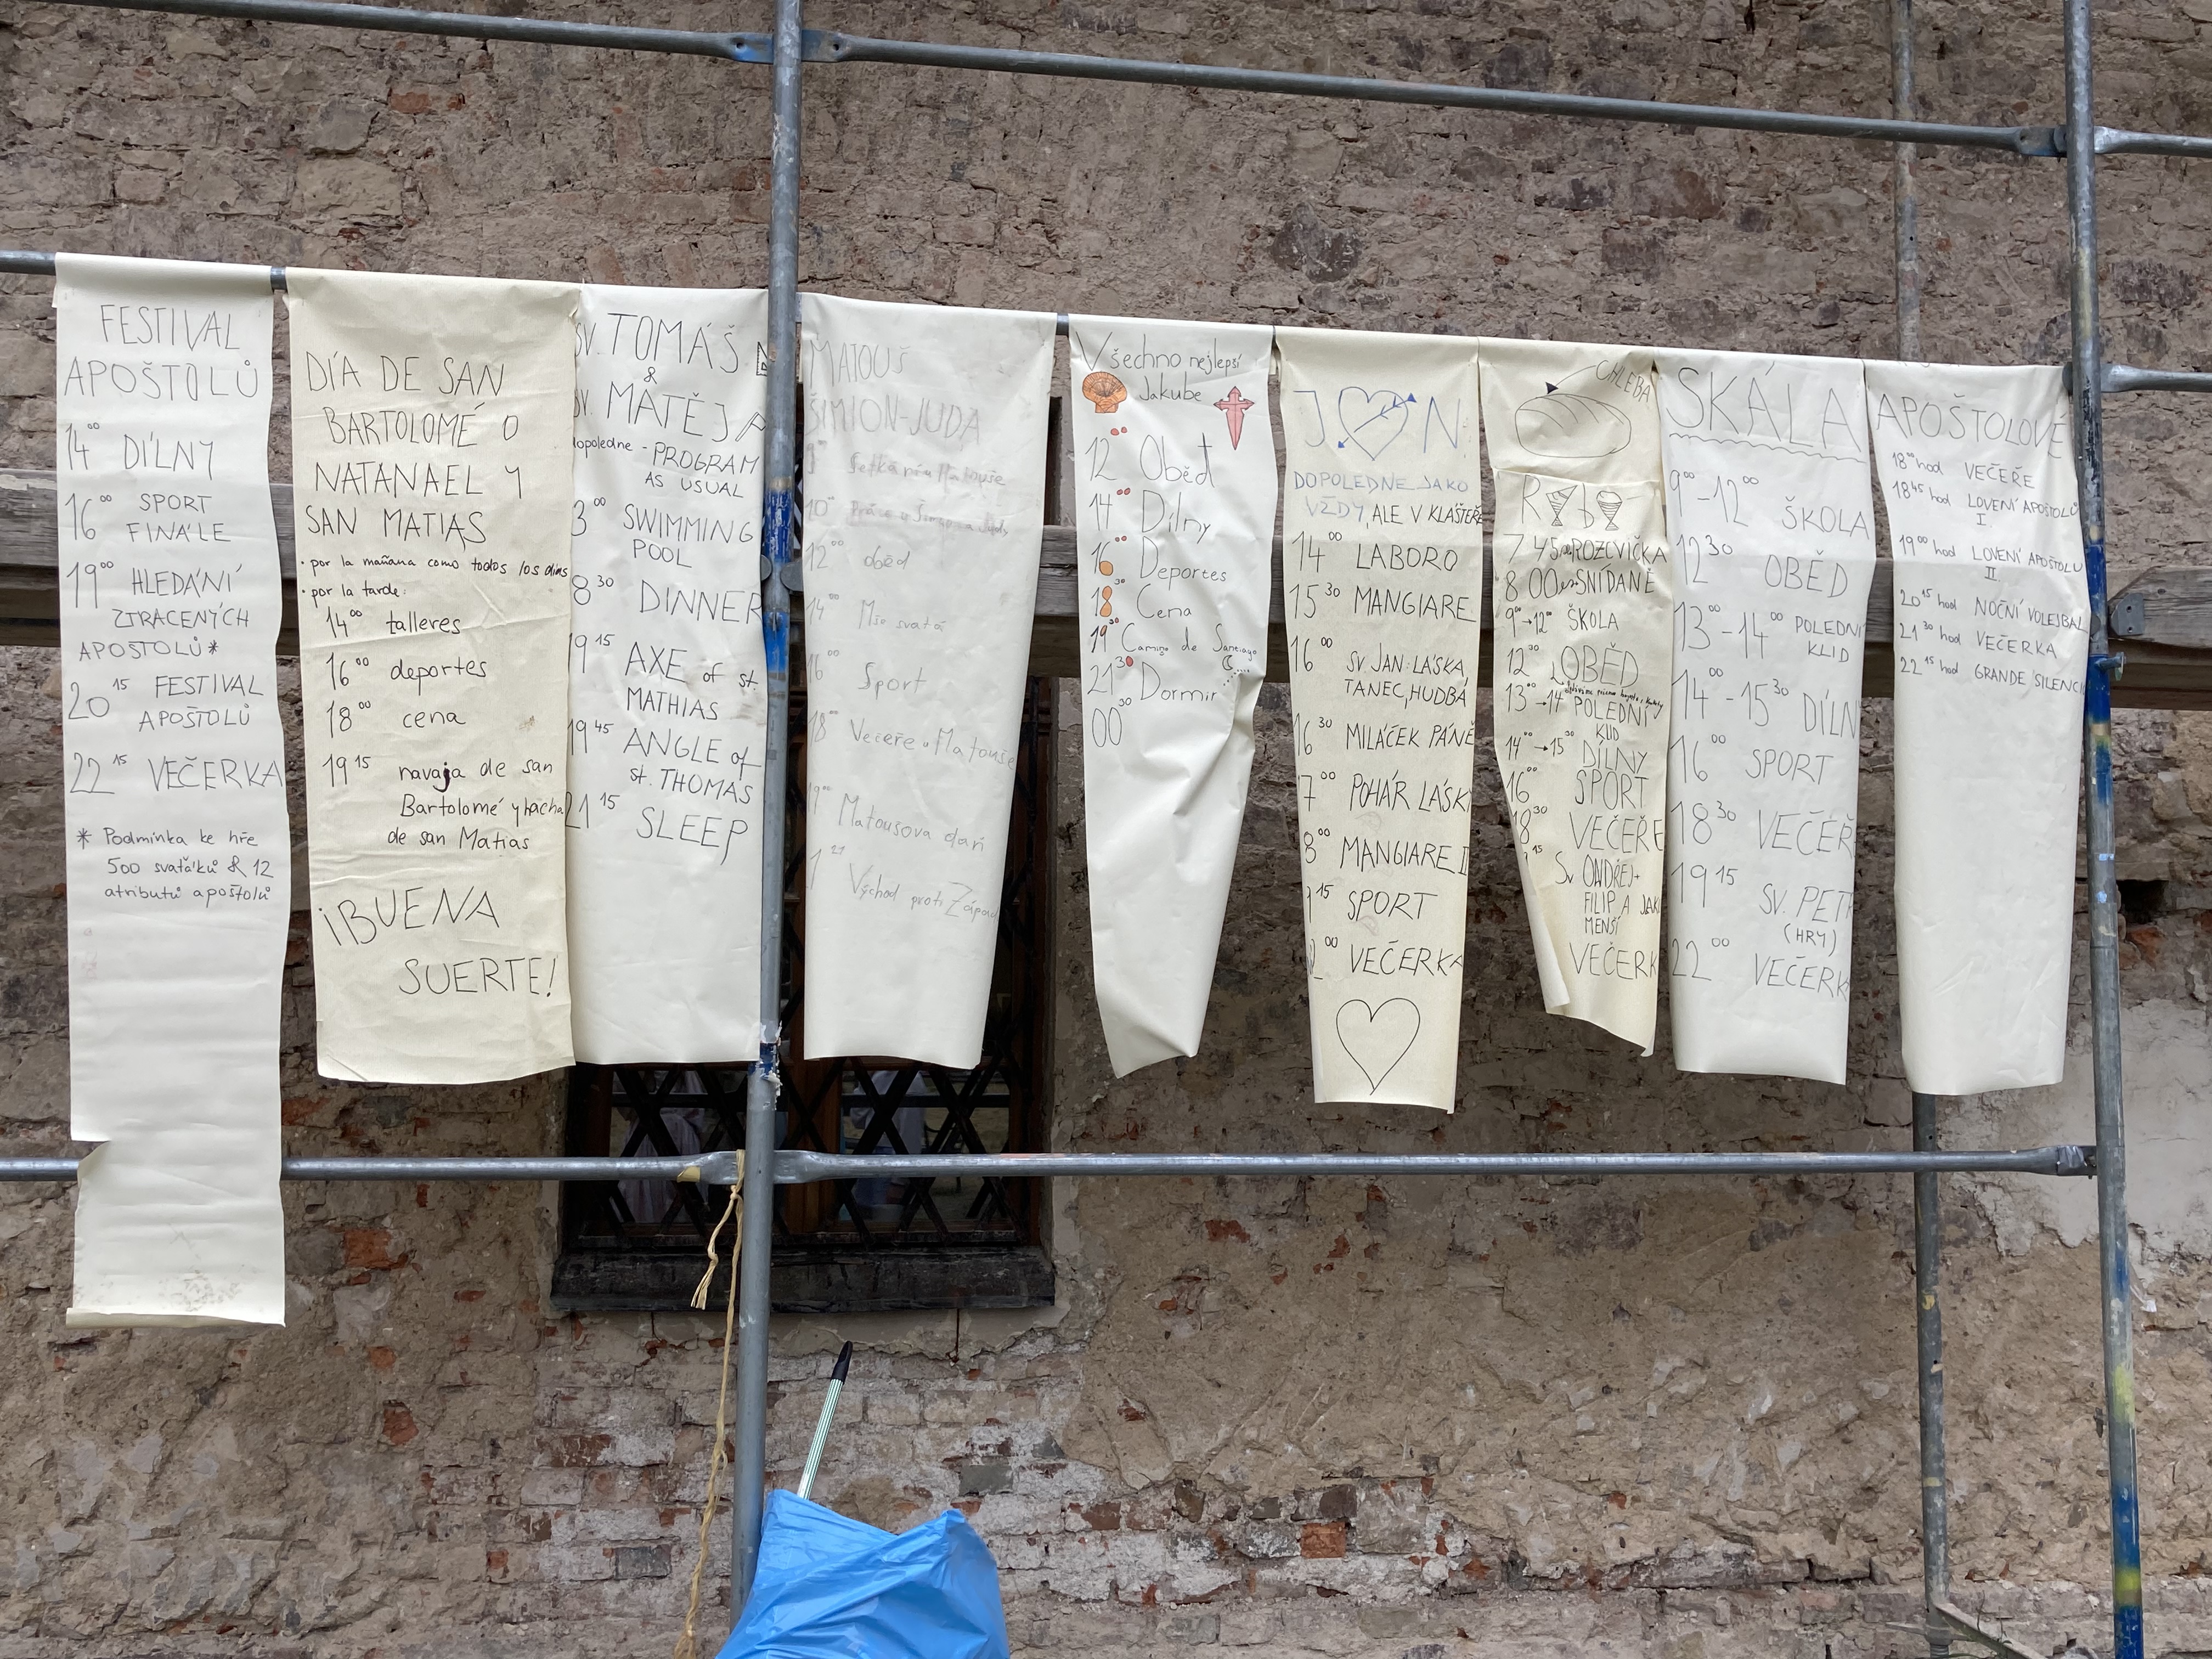 FESTIVAL
APOŠTOLŮ
14⁰⁰ DÍLNY
16⁰⁰ SPORT
FINÁLE
19⁰⁰ HLEDÁNÍ
ZTRACENÝCH
APOŠTOLŮ*
20¹⁵ FESTIVAL
APOŠTOLŮ
22¹⁵ VEČERKA
* Podmínka ke hře
500 svaťáků & 12
atributů apoštolů
DÍA DE SAN
BARTOLOMÉ O
NATANAEL Y
SAN MATIAS
• por la mañana como todos los días
• por la tarde:
14⁰⁰ talleres
16⁰⁰ deportes
18⁰⁰ cena
19¹⁵ navaja de san
Bartolomé y hacha
de san Matias
¡BUENA
SUERTE!
SV. TOMÁŠ
&
SV. MATĚJ
dopoledne - PROGRAM
AS USUAL
3⁰⁰ SWIMMING
POOL
8³⁰ DINNER
19¹⁵ AXE of st.
MATHIAS
19⁴⁵ ANGLE of
st. THOMAS
21¹⁵ SLEEP
MATOUŠ
ŠIMION-JUDA
10⁰⁰
12⁰⁰ oběd
14⁰⁰ Mše svatá
16⁰⁰ Sport
18⁰⁰ Večeře u Matouše
Matoušova daň
Východ proti Západ
Všechno nejlepší
Jakube
12⁰⁰ Oběd
14⁰⁰ Dílny
16⁰⁰ Deportes
18³⁰ Cena
19³⁰ Camino de Santiago
21³⁰ Dormir
00³⁰
J N
DOPOLEDNE JAKO
VŽDY, ALE V KLÁŠTEŘE
14⁰⁰ LABORO
15³⁰ MANGIARE
16⁰⁰ SV. JAN: LÁSKA,
TANEC, HUDBA
16³⁰ MILÁČEK PÁNĚ
7⁰⁰ POHÁR LÁSK
8⁰⁰ MANGIARE II
15 SPORT
00 VEČERKA
CHLEBA
RYBY
7 45 ROZCVIČKA
8 00 SNÍDANĚ
9⁰⁰→12⁰⁰ ŠKOLA
12³⁰ OBĚD
13⁰⁰→14⁰⁰ POLEDNÍ
KLID
14⁰⁰→15³⁰ DÍLNY
16⁰⁰ SPORT
18³⁰ VEČEŘE
15 SV ONDŘEJ+
FILIP A JAK
MENŠÍ
VEČERK
SKÁLA
9⁰⁰-12⁰⁰ ŠKOLA
12³⁰ OBĚD
13⁰⁰-14⁰⁰ POLEDNÍ
KLID
14⁰⁰-15³⁰ DÍLN
16⁰⁰ SPORT
18³⁰ VEČEŘ
19¹⁵ SV. PETR
(HRY)
22⁰⁰ VEČERK
APOŠTOLOVÉ
18⁰⁰ hod VEČEŘE
18⁴⁵ hod LOVENÍ APOŠTOLŮ
I.
19⁰⁰ hod LOVENÍ APOŠTOLŮ
II.
20¹⁵ hod NOČNÍ VOLEJBAL
21³⁰ hod VEČERKA
22¹⁵ hod GRANDE SILENCI